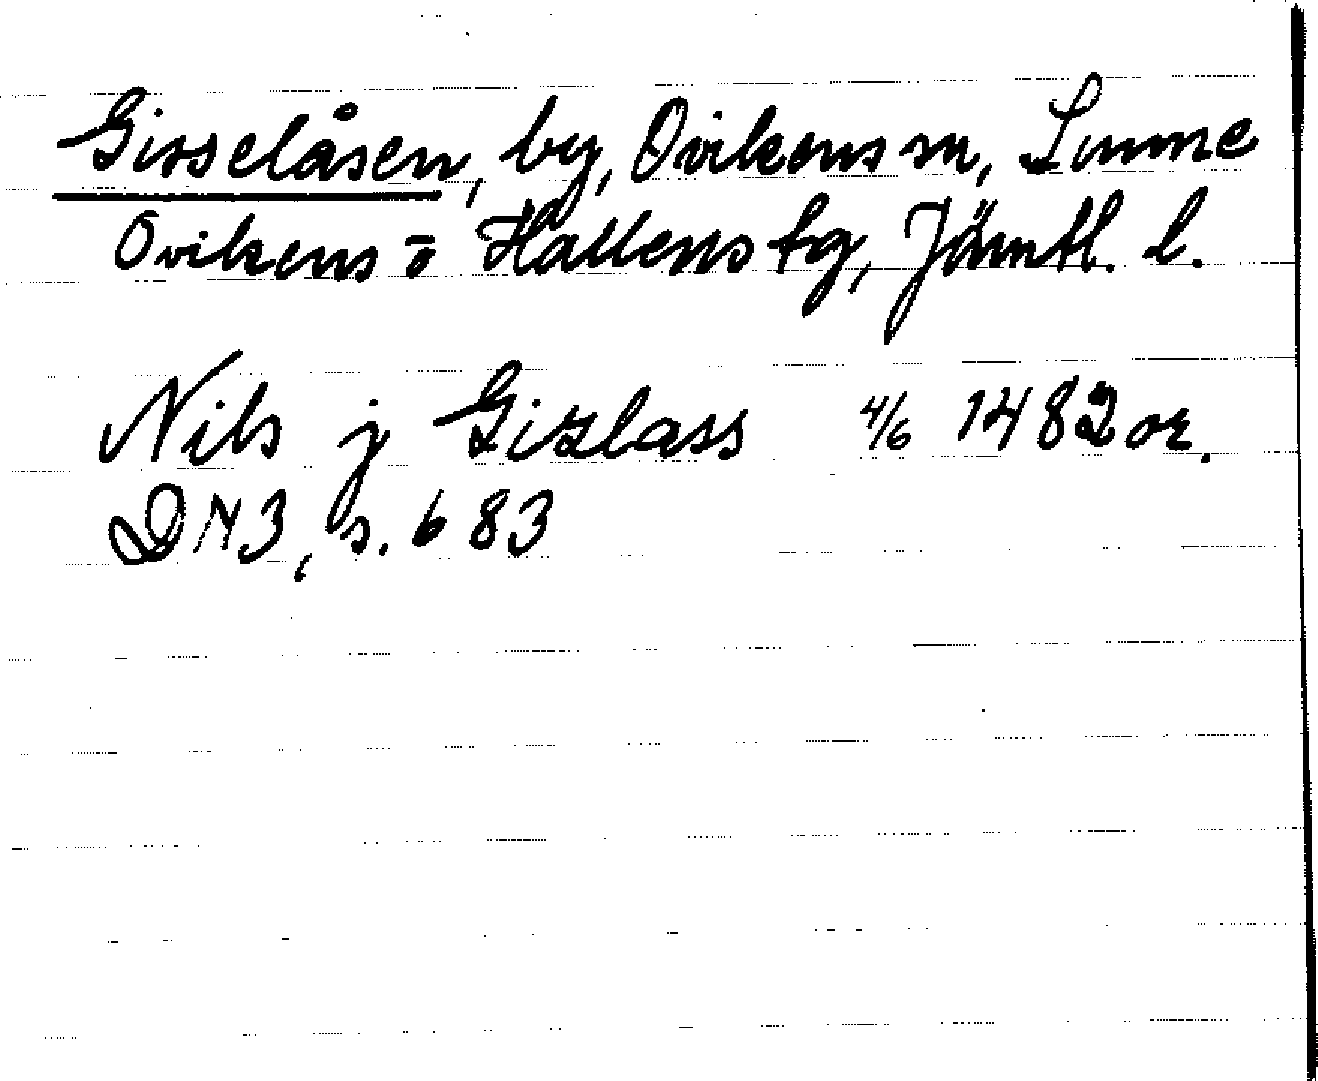 Gisselåsen, by, Ovikens sn, Sunne
Ovikens o Hallens tg, Jämtl. l.
Nils j Gizlass 4/6 1482 or.
DN3, s. 683